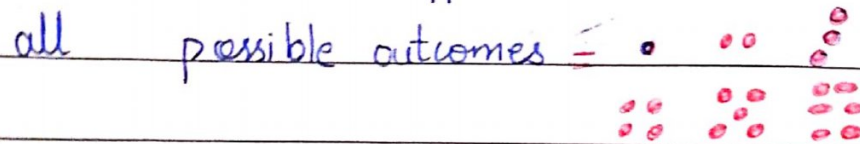 all possible outcomes =